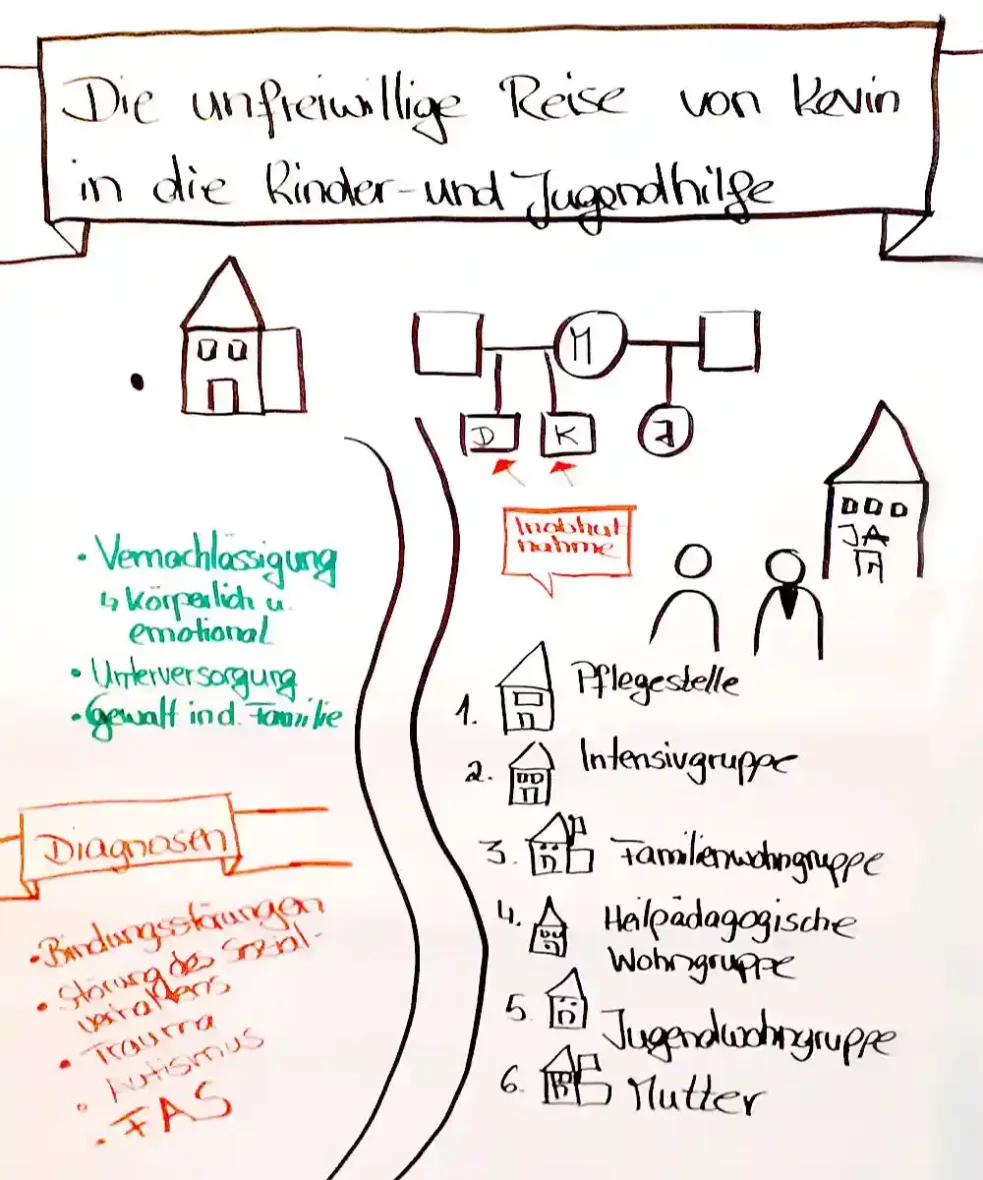 Die unfreiwillige Reise von Kevin
in die Kinder- und Jugendhilfe
M
D K J
Inobhut
nahme
JA
• Vernachlässigung
↳ körperlich u.
emotional
• Unterversorgung
• Gewalt in d. Familie
1. Pflegestelle
2. Intensivgruppe
3. Familienwohngruppe
4. Heilpädagogische
Wohngruppe
5. Jugendwohngruppe
6. Mutter
Diagnosen
• Bindungsstörungen
• Störung des Sozial-
verhaltens
• Trauma
• Autismus
• FAS